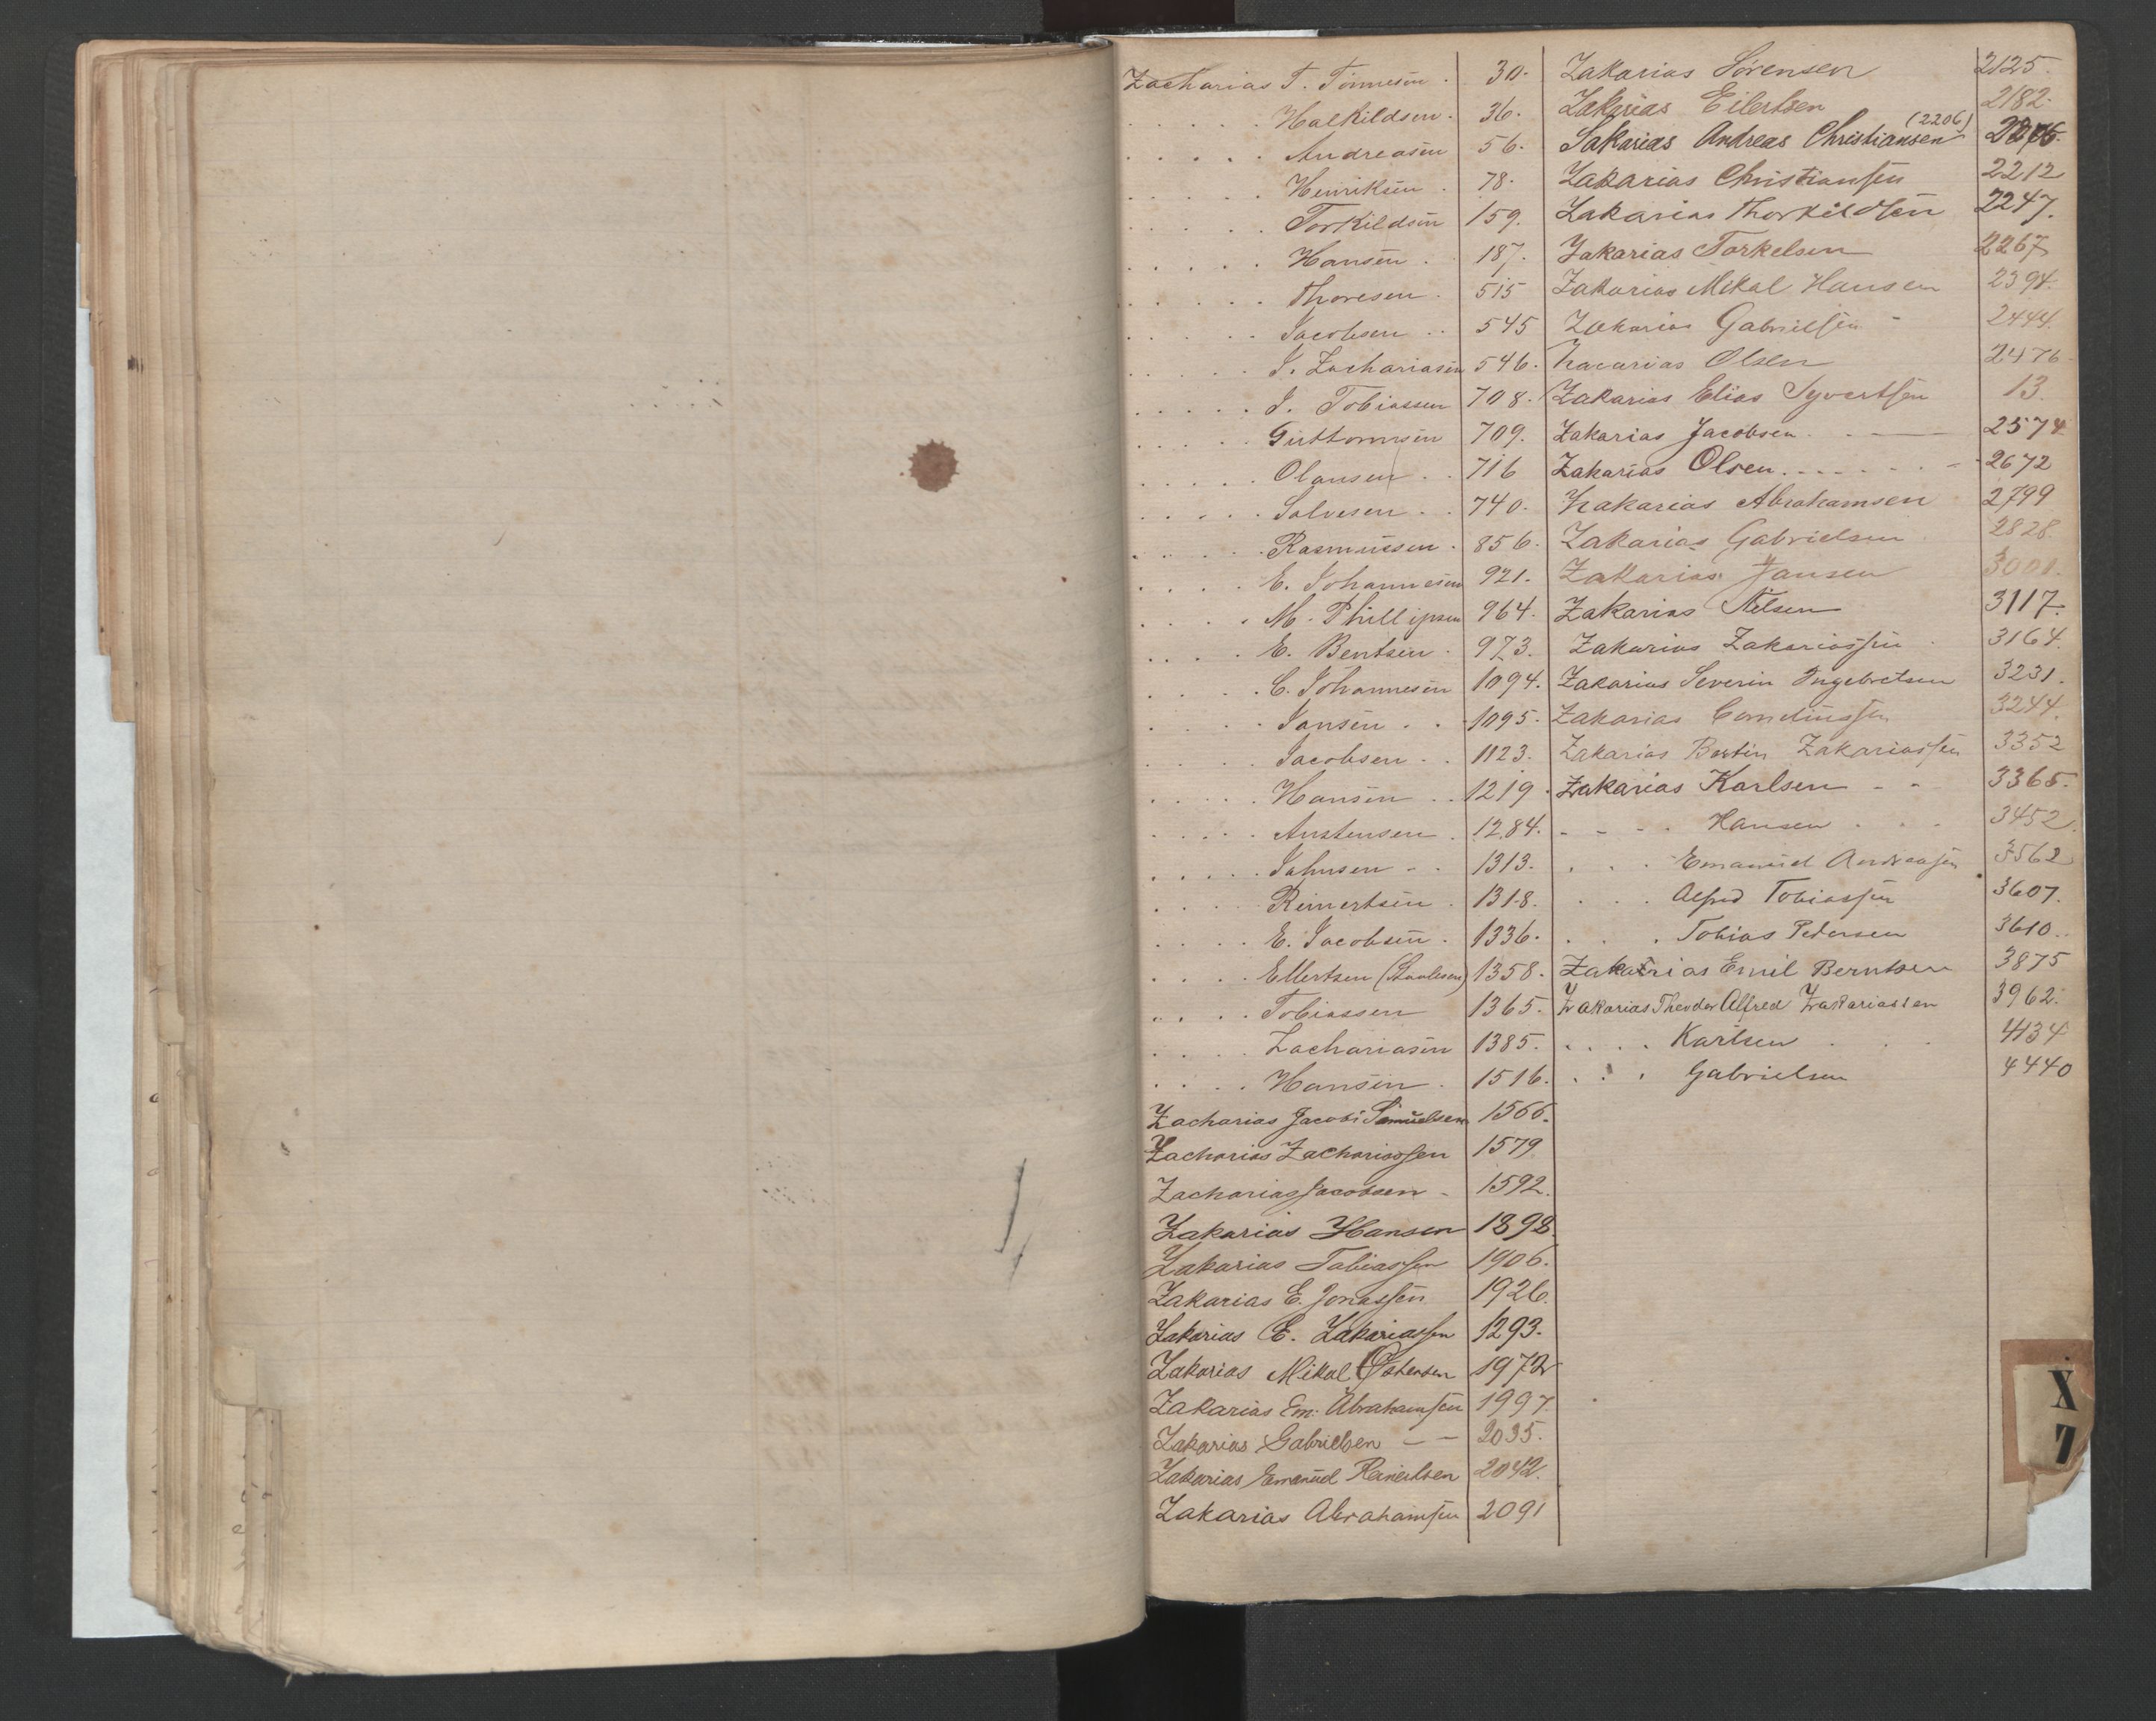 Zacharias T. Tönnesen . 30.
. . . . . Halkildsen . 36.
. . . . . Andreasen 56.
. . . . . Henriksen . 78.
. . . . . Torkildsen 159.
. . . . . Hansen . 187.
. . . . . Thoresen . 515
. . . . . Jacobsen . . 545
. . . . . J. Zachariasen 546.
. . . . . J. Tobiassen 708.
. . . . . Guttormsen 709.
. . . . . Olausen . . 716
. . . . . Salvesen . . 740.
. . . . . Rasmussen . 856.
. . . . E. Johannesen 921.
. . . . M. Phillipsen 964.
. . . . E. Bentsen . 973.
. . . . C. Johannesen 1094.
. . . . Jansen . . 1095.
. . . . . Jacobsen . . 1123.
. . . . . Hansen . . 1219.
. . . . . Austensen . 1284.
. . . . . Johnsen - . 1313.
. . . . Reinertsen . 1318.
. . . . E. Jacobsen . 1336.
. . . . Ellertsen (Staalesen) 1358.
. . . . Tobiassen 1365.
. . . . Zachariasen 1385.
. . . . Hansen . 1516.
Zacharias Jacobi Samuelsen 1566.
Zacharias Zachariassen 1579
Zacharias Jacobsen - 1592.
Zakarias Hansen 1898.
Zakarias Tobiassen 1906.
Zakarias E. Jonassen 1926.
Zakarias E. Zakariassen 1293.
Zakarias Mikal Ostensen 1972
Zakarias Em. Abrahamsen 1997.
Zakarias Gabrielsen - - 2035.
Zakarias Emanuel Reinertsen 2042.
Zakarias Abrahamsen 2091
Zakarias Sörensen 2125.
Zakarias Eilertsen 2182.
Sakarias Andreas Christiansen (2206)
Zakarias Christiansen 2212
Zakarias Thorkildsen 2247.
Zakarias Torkelsen 2267
Zakarias Mikal Hansen 2394.
Zakarias Gabrielsen - 2444.
Zacarias Olsen 2476
Zakarias Elias Syvertsen 13.
Zakarias Jacobsen . - 2574
Zakarias Olsen . . . . . . 2672
Zakarias Abrahamsen 2799
Zakarias Gabrielsen 2828
Zakarias Jansen 3001.
Zakarias Nilsen 3117.
Zakarias Zakariassen 3164.
Zakarias Severin Ingebretsen 3231.
Zakarias Corneliussen 3244.
Zakarias Bertin Zakariassen 3352
Zakarias Karlsen - - 3365.
- - - . Hansen . . . 3452.
. . . Emanuel Andreasen 3562
. . . Alfred Tobiassen 3607.
. . . Tobias Pedersen 3610.
Zakarias Emil Berntsen 3875
Zakarias Theodor Alfred Zakariassen 3962.
. . . . Karlsen . . . 4134
. . . Gabrielsen 4440
X
Z